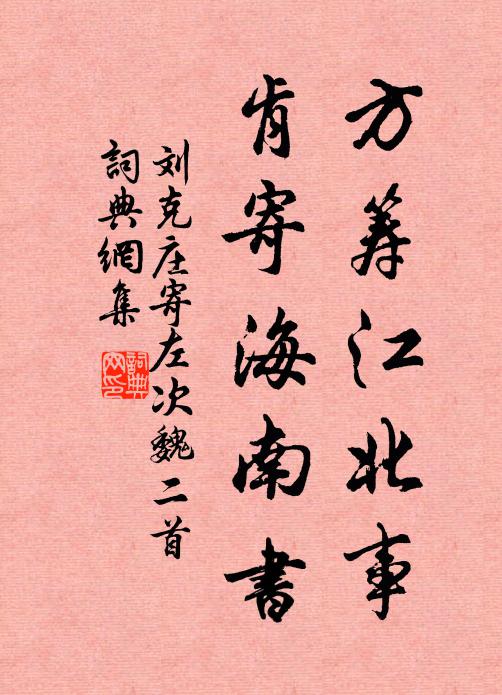 方筹江北事
肯寄海南書
刘克庄寄左次魏二首
詞典網集
詞典网印